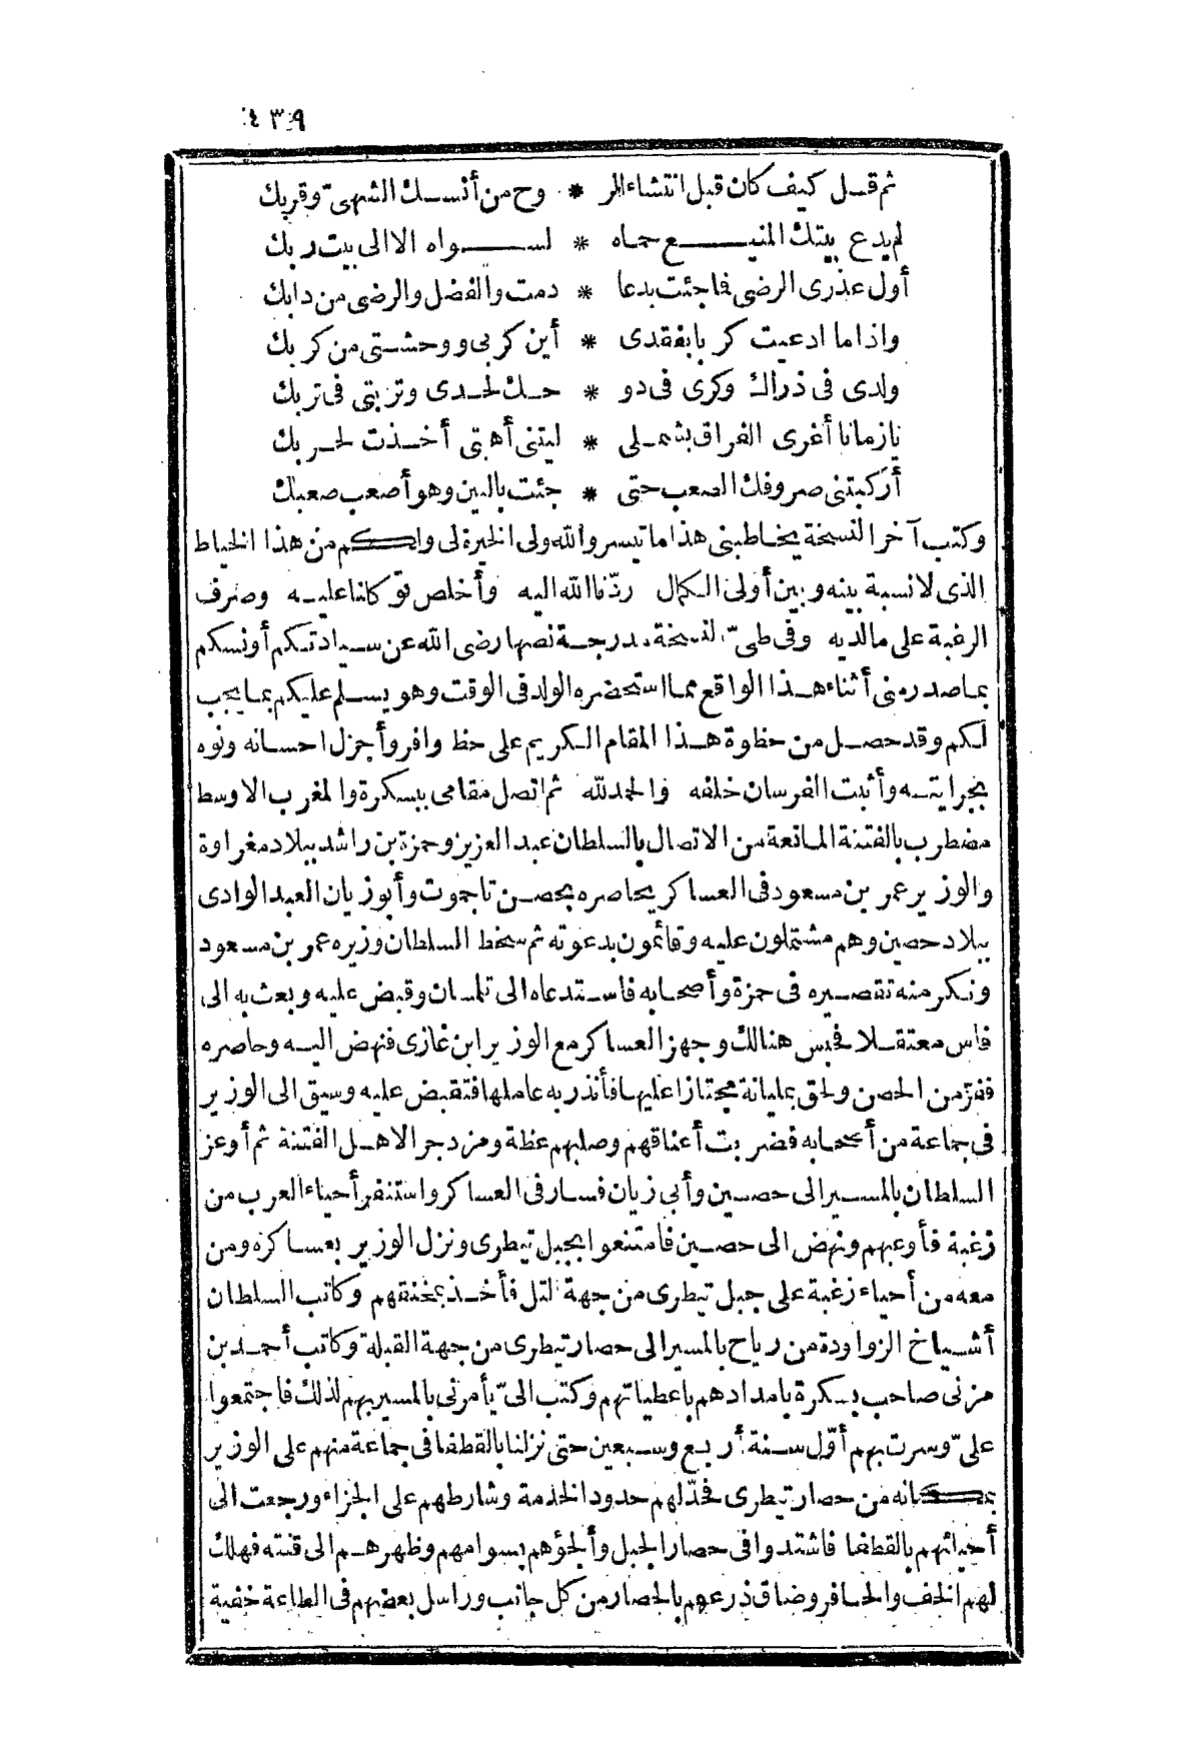 ٤٣٩
ثم قل كيف كان قبل انتشاء الر * وح من أنسك الشهىّ وقربك
لم يدع بيتك المنيع حماه * لسواه الا الى بيت ربك
أول عذرى الرضى فما جئت بدعا * دمت والفضل والرضى من دابك
واذا ما ادعيت كربا بفقدى * أين كربى ووحشتى من كربك
ولدى فى ذراك وكرى فى دو * حك لحدى وتربتى فى تربك
يا زمانا أغرى الفراق بشملى * ليتنى أهبتى أخذت لحربك
أركبتنى صروفك الصعب حتى * جئت بالبين وهو أصعب صعبك
وكتب آخر النسخة يخاطبنى هذا ما تيسر والله ولى الخيرة لى ولكم من هذا الخباط
الذى لا نسبة بينه وبين أولى الكمال ردّنا الله اليه وأخلص توكلنا عليه وصرف
الرغبة على مالديه وفى طىّ النسخة مدرجة نصها رضى الله عن سيادتكم أونسكم
بما صدر منى أثناء هذا الواقع مما استحضره الولد فى الوقت وهو يسلم عليكم بما يجب
لكم وقد حصل من حظوة هذا المقام الكريم على حظ وافر وأجزل احسانه ونوه
بجرايته وأثبت الفرسان خلفه والحمد لله ثم اتصل مقامى ببسكرة والمغرب الاوسط
مضطرب بالفتنة المانعة من الاتصال بالسلطان عبد العزيز وحمزة بن راشد ببلاد مغراوة
والوزير عمر بن مسعود فى العساكر يحاصره بحصن تاجموت وأبو زيان العبد الوادى
ببلاد حصين وهم مشتملون عليه وقائمون بدعوته ثم سخط السلطان وزيره عمر بن مسعود
ونكر منه تقصيره فى حمزة وأصحابه فاستدعاه الى تلمسان وقبض عليه وبعث به الى
فاس معتقلا فحبس هنالك وجهز العساكر مع الوزير ابن غازى فنهض اليه وحاصره
ففرّ من الحصن ولحق بمليانة مجتازا عليها فأنذر به عاملها فتقبض عليه وسيق الى الوزير
فى جماعة من أصحابه فضربت أعناقهم وصلبهم عظة ومزدجر الاهل الفتنة ثم أوعز
السلطان بالمسير الى حصين وأبى زيان فسار فى العساكر واستنفر أحياء العرب من
زغبة فأوعبهم ونهض الى حصين فامتنعوا بجبل تيطرى ونزل الوزير بعساكره ومن
معه من أحياء زغبة على جبل تيطرى من جهة التل فأخذ بمخنقهم وكاتب السلطان
أشياخ الزواودة من رياح بالمسير الى حصار تيطرى من جهة القبلة وكاتب أحمد بن
مزنى صاحب بسكرة بامدادهم باعطياتهم وكتب الىّ يأمرنى بالمسير بهم لذلك فاجتمعوا
علىّ وسرت بهم أوّل سنة أربع وسبعين حتى نزلنا بالقطفا فى جماعة منهم على الوزير
بمكانه من حصار تيطرى فحدّ لهم حدود الخدمة وشارطهم على الجزاء ورجعت الى
أحيائهم بالقطفا فاشتدوا فى حصار الجبل وألجؤهم بسوامهم وظهرهم الى قنته فهلك
لهم الخف والحافر وضاق ذرعهم بالحصار من كل جانب وراسل بعضهم فى الطاعة خفية